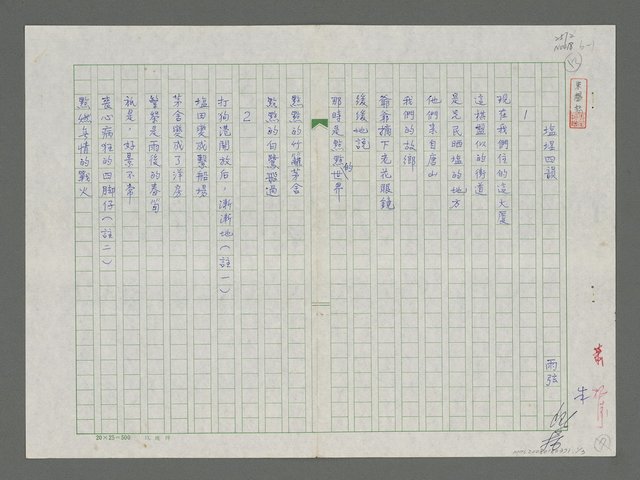 鹽埕四韻
雨弦
1
現在我們住的這大廈
這棋盤似的街道
是先民晒塩的地方
他們來自唐山
我們的故鄉
爺爺摘下老花眼鏡
緩緩地說
那時是點點的世界
點點的竹籬茅舍
點點的白鷺飛過
2
打狗港開放后,漸漸地(註一)
塩田變成繫船場
茅舍變成了洋房
繁榮是雨後的春筍
祇是,好景不常
喪心病狂的四腳仔(註二)
點燃無情的戰火
20×25=500